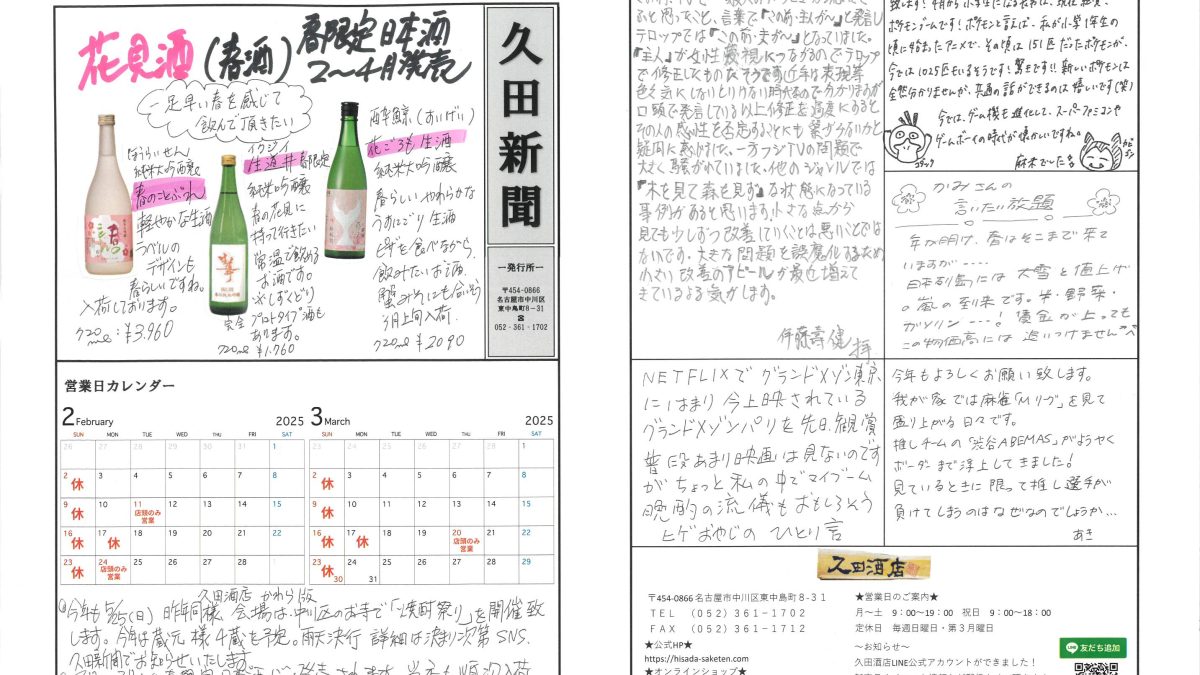 花見酒
(春酒)
春限定日本酒
2～4月発売
一足早い春を感じて
飲んで頂きたい
ほうらいせん
純米大吟醸
春のことぶれ
軽やかな生酒
ラベルの
デザインも
春らしいですね。
入荷しております。
720ml:¥3.960
イクジイ
生酒 春限定
純米吟醸
春の花見に
持って行きたい
常温で飲める
お酒です。
※しずくどり
完全プロトタイプ酒も
あります。
720ml ¥1.760
酔鯨(すいげい)
花ごろも生酒
純米大吟醸
春らしいやわらかな
うすにごり生酒
ピザを食べながら、
飲みたいお酒。
蟹みそにも合いそう
3月上旬入荷
720ml ¥2090
久田新聞
―発行所―
〒454-0866
名古屋市中川区
東中島町8-31
☎
052・361・1702
営業日カレンダー
2 February 2025
SUN MON TUE WED THU FRI SAT
26 27 28 29 30 31 1
2 休 3 4 5 6 7 8
9 休 10 11 店頭のみ営業 12 13 14 15
16 休 17 休 18 19 20 21 22
23 休 24 店頭のみ営業 25 26 27 28
3 March 2025
SUN MON TUE WED THU FRI SAT
1
2 休 3 4 5 6 7 8
9 休 10 11 12 13 14 15
16 休 17 休 18 19 20 店頭のみ営業 21 22
23 休 30 24 31 25 26 27 28 29
久田酒店 かわら版
今年も5/25(日) 昨年同様、会場は中川区のお寺で「焼酎祭り」を開催致
します。今年は蔵元様4蔵を予定。雨天決行 詳細は決まり次第SNS、
久田新聞でお知らせいたします。
ぶと思ったこと、言葉で『この前・主人が～』と発言し
テロップでは『この前・夫が～』となっていました。
『主人』が女性蔑視につながるのでテロップ
で修正したものだそうです。近年は表現等
色々気にしないといけない時代なので分かりますが
口頭で発言している以上修正を過度にあると
その人の感性を否定することにも繋がらないかと
疑問に感じました。一方フジTVの問題で
大きく騒がれていました。他のジャンルでは
『木を見て森を見ず』な状態になっている
事例があると思います。小さな点から
見ても少しずつ改善していくことは悪いことでは
ないです。大きな問題を誤魔化するため
小さい改善のアピールが最近増えて
きているよう気がします。
伊藤壽健 拝
ポケモンゲームです!ポケモンと言えば、私が小学1年生の
頃に始まったアニメで、その頃は151匹だったポケモンが、
今では1025匹もいるそうです!驚きです!!新しいポケモンは
全然分かりませんが、共通の話ができるのは嬉しいです(笑)
今では、ゲーム機も進化して、スーパーファミコンや
ゲームボーイの時代が懐かしいですね。
麻木でいたる
コダック
カビゴン
かみさんの
言いたい放題
年が明け、春はそこまで来て
いますが・・・・
日本列島には大雪と値上げ
の嵐の到来です。米・野菜・
ガソリン・・・・!賃金が上っても
この物価高には追いつけません
NETFLIXでグランドメゾン東京
にはまり今上映されている
グランドメゾンパリを先日、観賞
普段あまり映画は見ないのです
がちょっと私の中でマイブーム
晩酌の流儀もおもしろそう
ヒゲおやじのひとり言
今年もよろしくお願い致します。
我が家では麻雀「Mリーグ」を見て
盛り上がる日々です。
推しチームの「渋谷ABEMAS」がようやく
ボーダーまで浮上してきました!
見ているときに限って推し選手が
負けてしまうのはなぜなのでしょうか…
あき
久田酒店
〒454-0866名古屋市中川区東中島町8-31
TEL (052)361-1702
FAX (052)361-1712
★公式HP★
https://hisada-saketen.com
★オンラインショップ★
★営業日のご案内★
月～土 9:00～19:00 祝日 9:00～18:00
定休日 毎週日曜日・第3月曜日
～お知らせ～
久田酒店LINE公式アカウントができました!
LINE 友だち追加